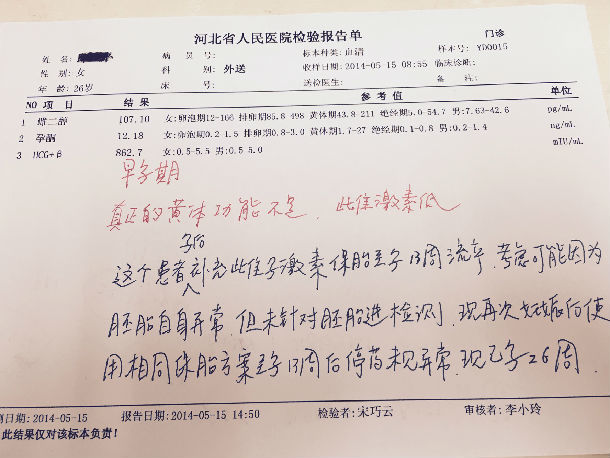 河北省人民医院检验报告单
门诊
姓 名: 病 员 号: 标本种类: 血清 样本号: YD0015
性 别: 女 科 别: 外送 收样日期: 2014-05-15 08:55 临床诊断:
年 龄: 26岁 床 号: 送检医生: 备 注:
NO 项 目 结 果 参 考 值 单位
1 雌二醇 107.10 女:卵泡期12-166 排卵期85.8-498 黄体期43.8-211 绝经期5.0-54.7 男:7.63-42.6 pg/mL
2 孕酮 12.18 女:卵泡期0.2-1.5 排卵期0.8-3.0 黄体期1.7-27 绝经期0.1-0.8 男:0.2-1.4 ng/mL
3 HCG+β 862.7 女:0.5-5.5 男:0.5-5.0 mIU/mL
早孕期
真正的黄体功能不足,此住激素低
孕后
这个患者补充此住孕激素保胎至孕13周流产,考虑可能因为
胚胎自身异常,但未针对胚胎进检测,现再次妊娠后使
用相同保胎方案至孕13周后停药未见异常,现已孕26周
测日期: 2014-05-15 报告日期: 2014-05-15 14:50 检验者: 宋巧云 审核者: 李小玲
此结果仅对该标本负责!